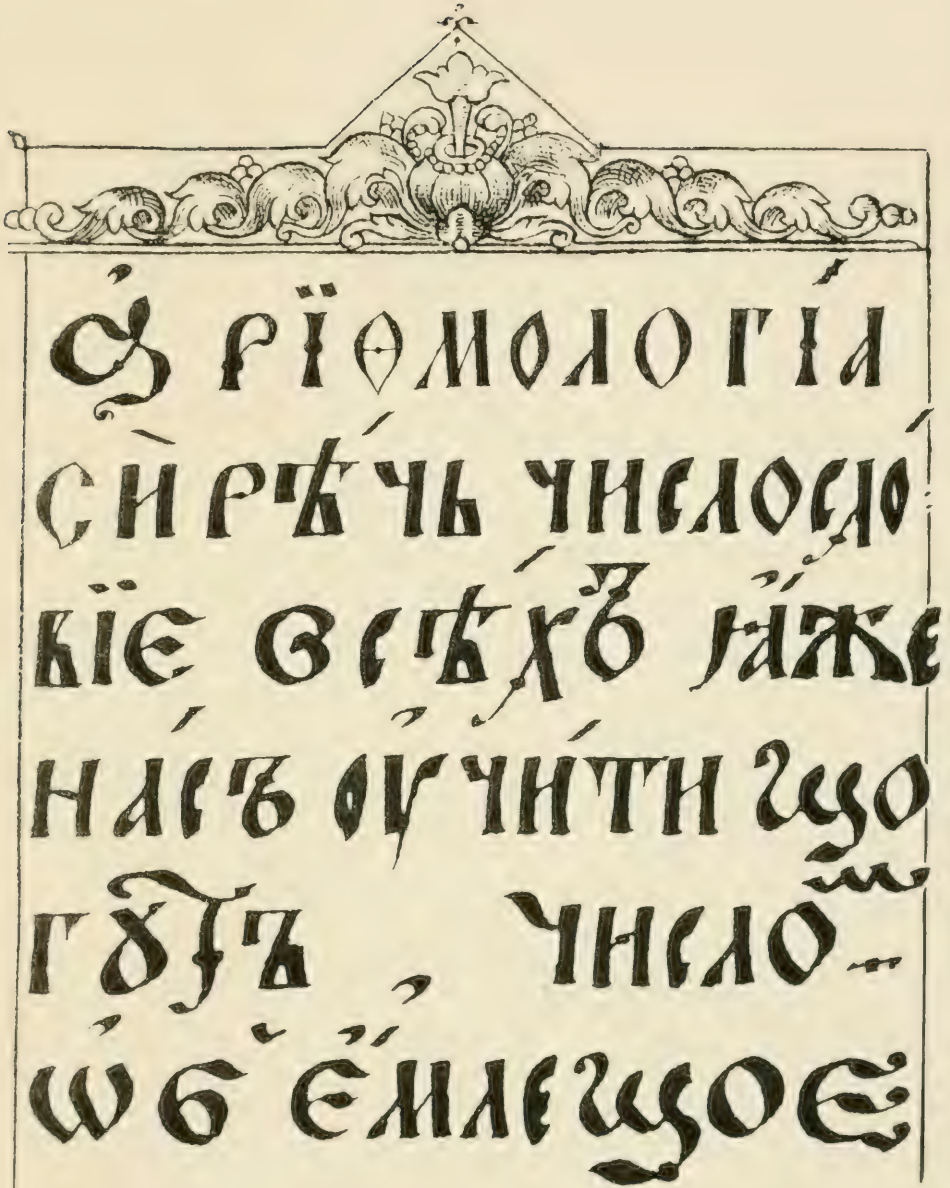 А҆рїѳмологі́а
сѝрѣ́чь числосло́
вїе всѣ́хъ ꙗ҆́же
на́съ оу҆чи́ти мо
гꙋтъ числоⷨ
ѡ҆б̾ е҆́млемое